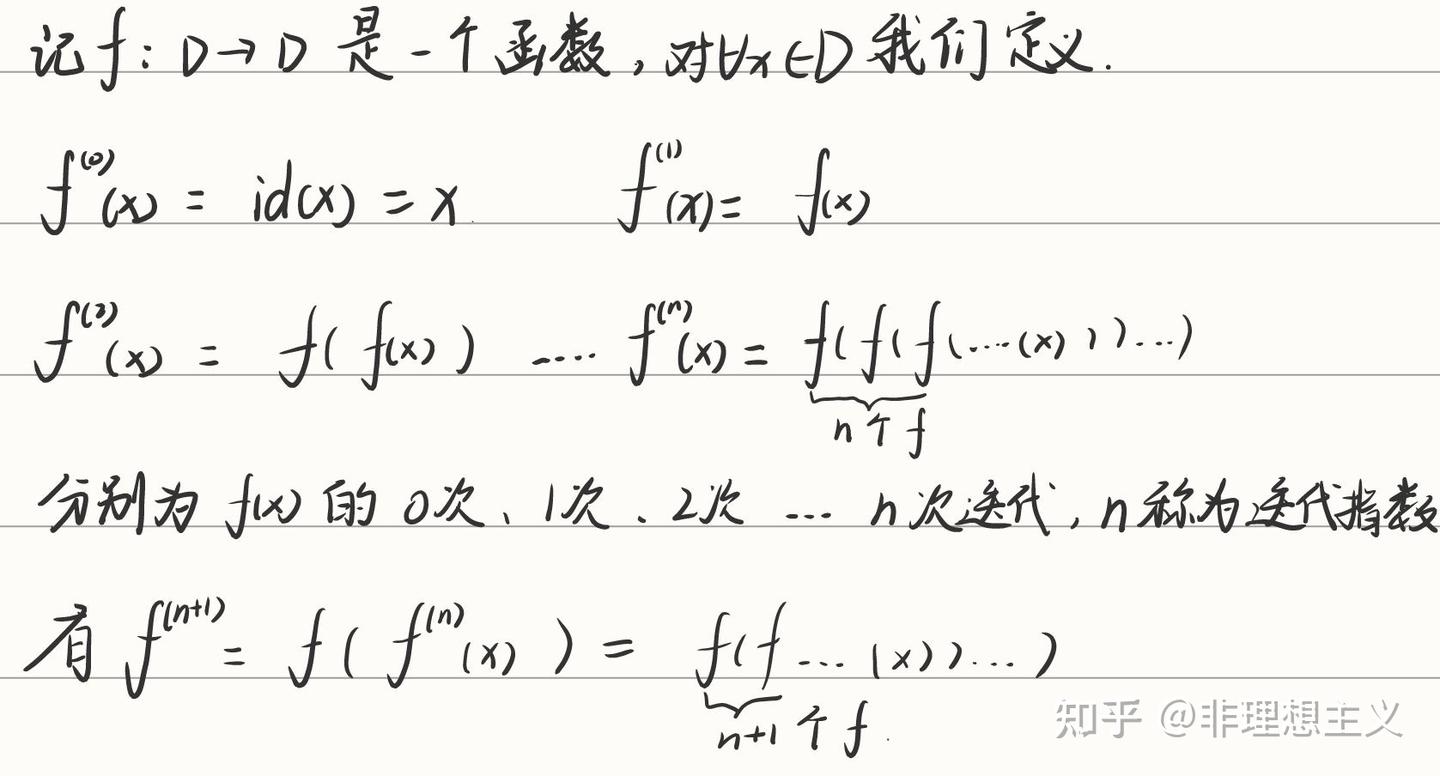 记 f: D→D 是一个函数,对∀x∈D 我们定义.
f⁽⁰⁾(x) = id(x) = x. f⁽¹⁾(x) = f(x)
f⁽²⁾(x) = f( f(x) ) ···· f⁽ⁿ⁾(x) = f( f( f(···(x) ) )···)
n个f
分别为 f(x) 的 0次、1次、2次 ··· n次迭代, n称为迭代指数
有 f⁽ⁿ⁺¹⁾ = f( f⁽ⁿ⁾(x) ) = f(f ···(x))···)
n+1个f.
知乎 @非理想主义